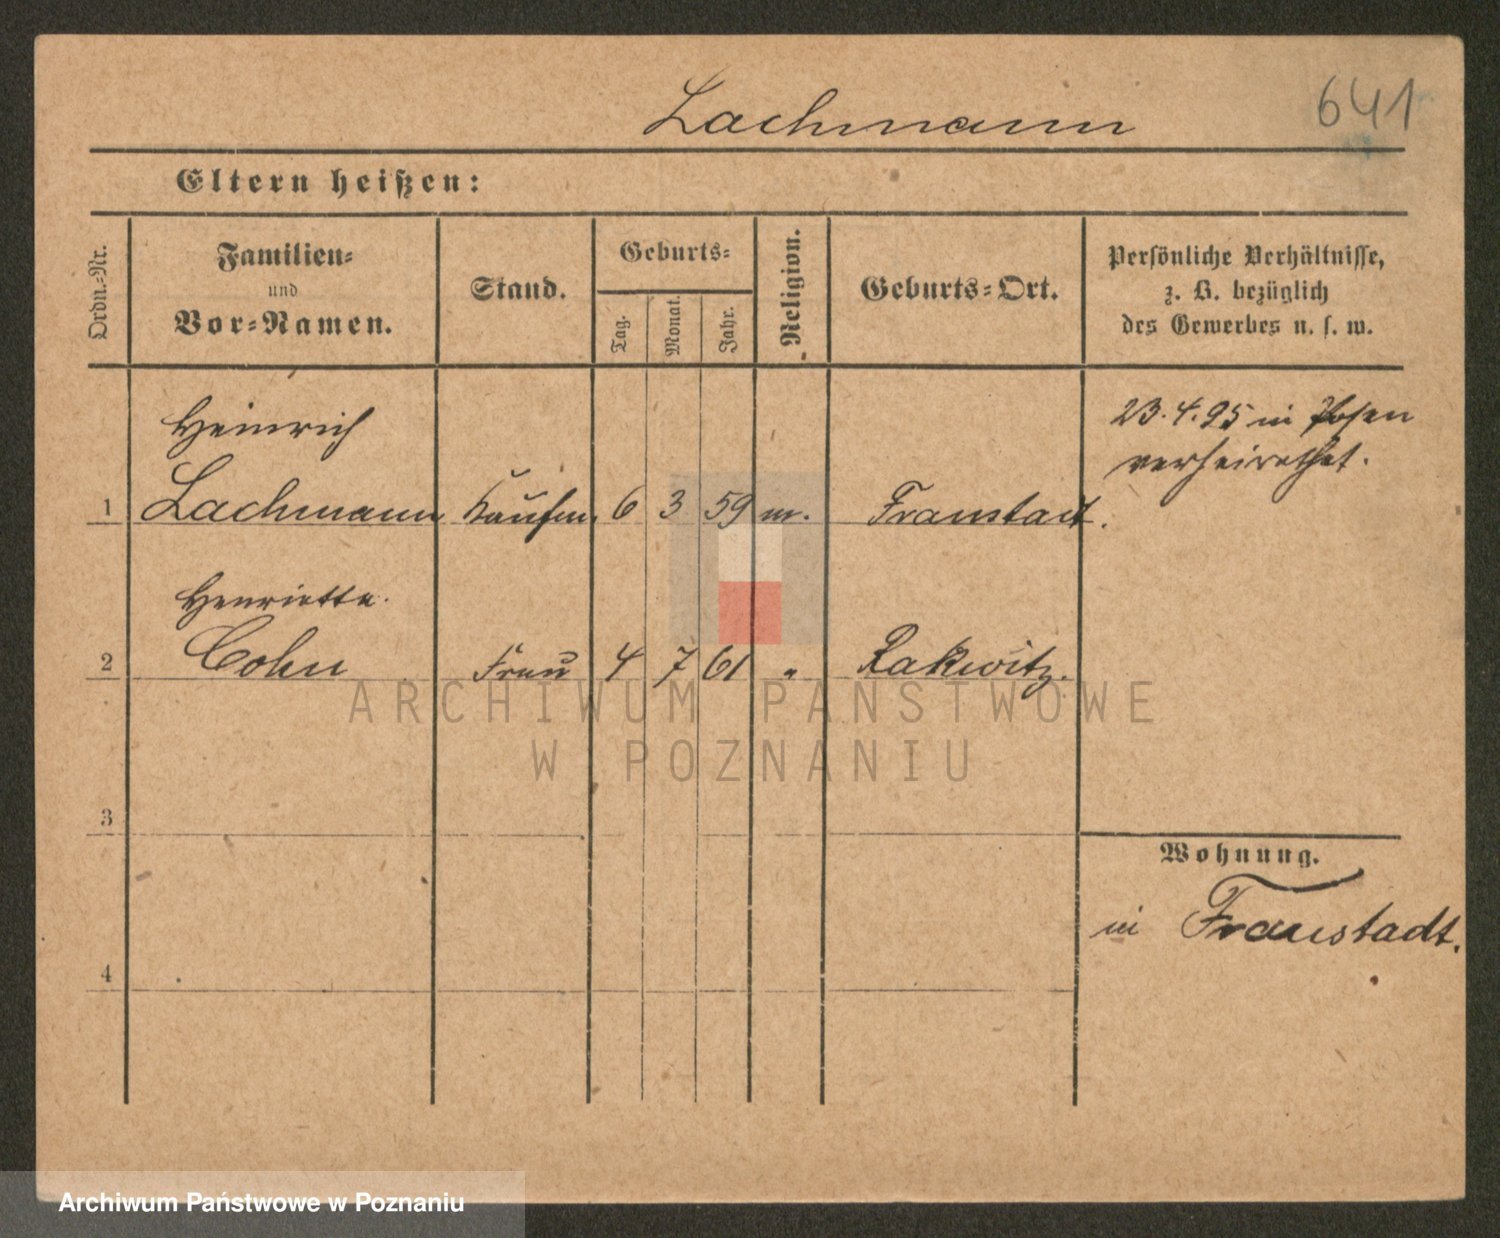 Lachmann
641
Eltern heißen:
Ordn.-Nr.
Familien-
und
Vor-Namen.
Stand.
Geburts-
Tag.
Monat.
Jahr.
Religion.
Geburts-Ort.
Persönliche Verhältnisse,
z. B. bezüglich
des Gewerbes u. s. w.
Heinrich
1 Lachmann Kaufm. 6 3 59 m. Fraustadt.
23.4.95 in Posen
verheirathet.
Henriette.
2 Cohn Frau 4 7 61 " Rakwitz.
3
4
Wohnung.
in Fraustadt.
ARCHIWUM PAŃSTWOWE
W POZNANIU
Archiwum Państwowe w Poznaniu